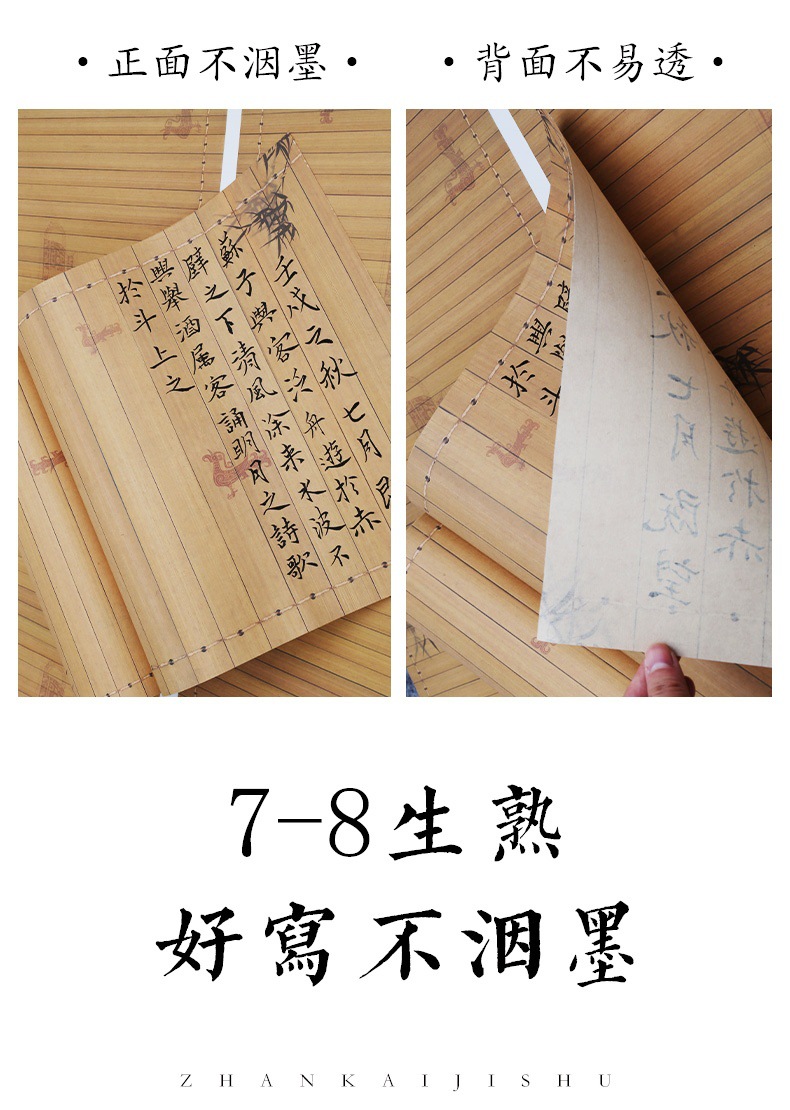 ·正面不洇墨·
·背面不易透·
壬戌之秋七月
蘇子與客泛舟遊於赤
壁之下清風徐来水波不
興舉酒属客誦明月之詩歌
於斗上之
興
於斗
秋七月既望
遊於赤
7-8生熟
好寫不洇墨
ZHANKAIJISHU